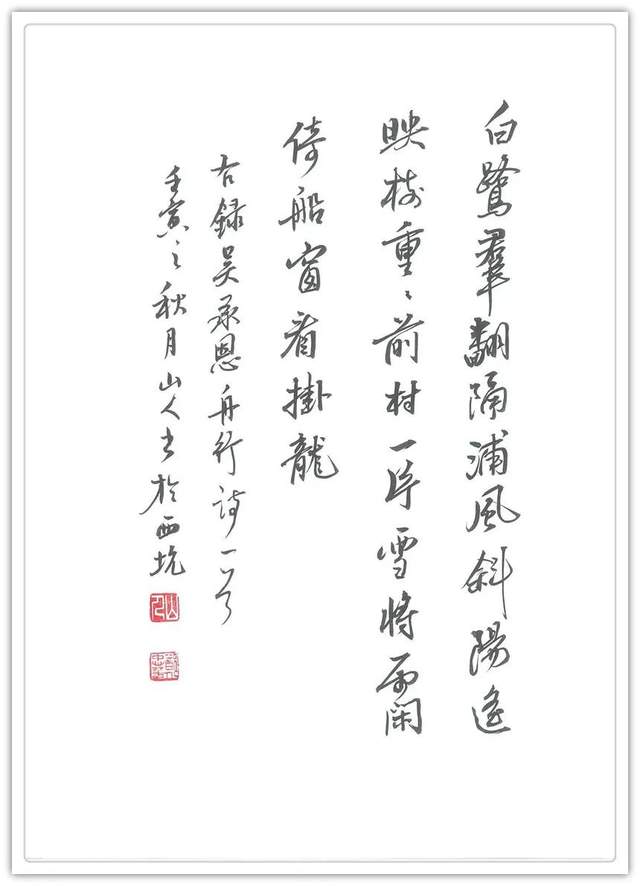 白鷺羣翻隔浦風斜陽遙
映樹重〻前村一片雲將雨閑
倚船窗看掛龍
右錄吳承恩舟行詩一首
壬寅之秋月山人書於西坑
山人